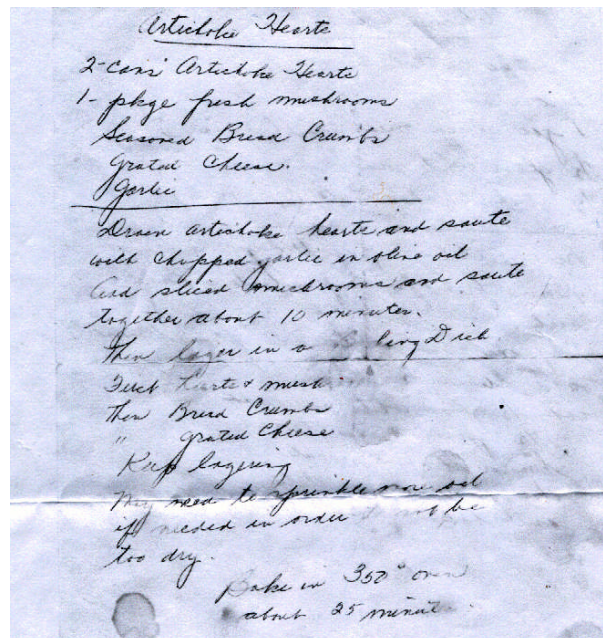 Artichoke Hearts
2-cans Artichoke Hearts
1- pkge fresh mushrooms
Seasoned Bread Crumbs
Grated Cheese.
Garlic
Drain artichoke hearts and saute
with chopped garlic in olive oil
Add sliced mushrooms and saute
together about 10 minutes.
Then layer in a Dish
First hearts & mush
then Bread Crumbs
" Grated Cheese
Keep layering
May need to sprinkle more oil
if needed in order not be
too dry.
Bake in 350° oven
about 25 minute